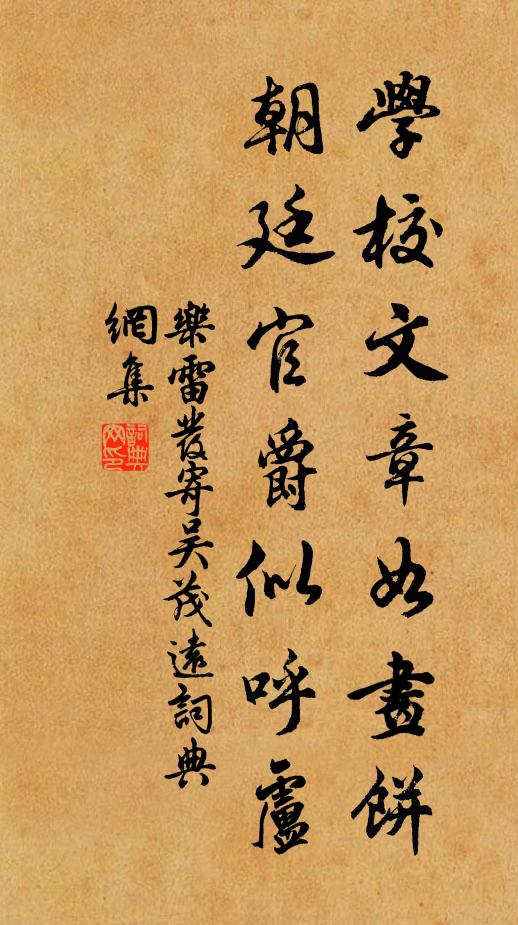 學校文章如畫餅
朝廷官爵似呼盧
樂雷發寄吳茂遠詞典
網集
詞典
網印